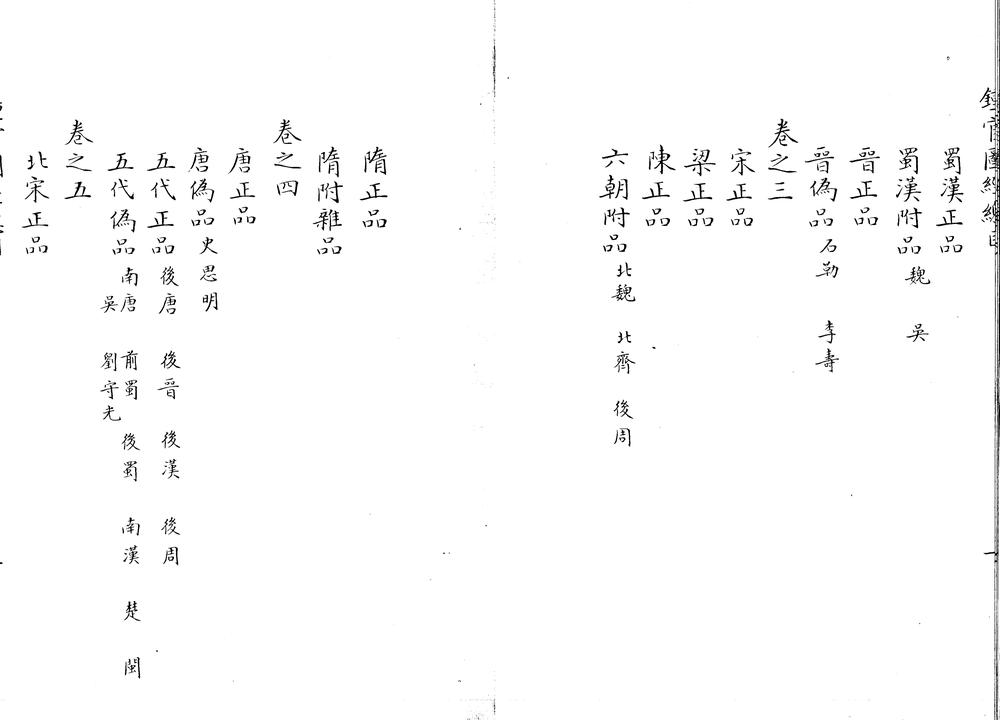 蜀漢正品
蜀漢附品 魏 吳
晉正品
晉偽品 石勒 李壽
卷之三
宋正品
梁正品
陳正品
六朝附品 北魏 北齊 後周
隋正品
隋附雜品
卷之四
唐正品
唐偽品 史思明
五代正品 後唐 後晉 後漢 後周
五代偽品 南唐 前蜀 後蜀 南漢 楚 閩
吳 劉守光
卷之五
北宋正品